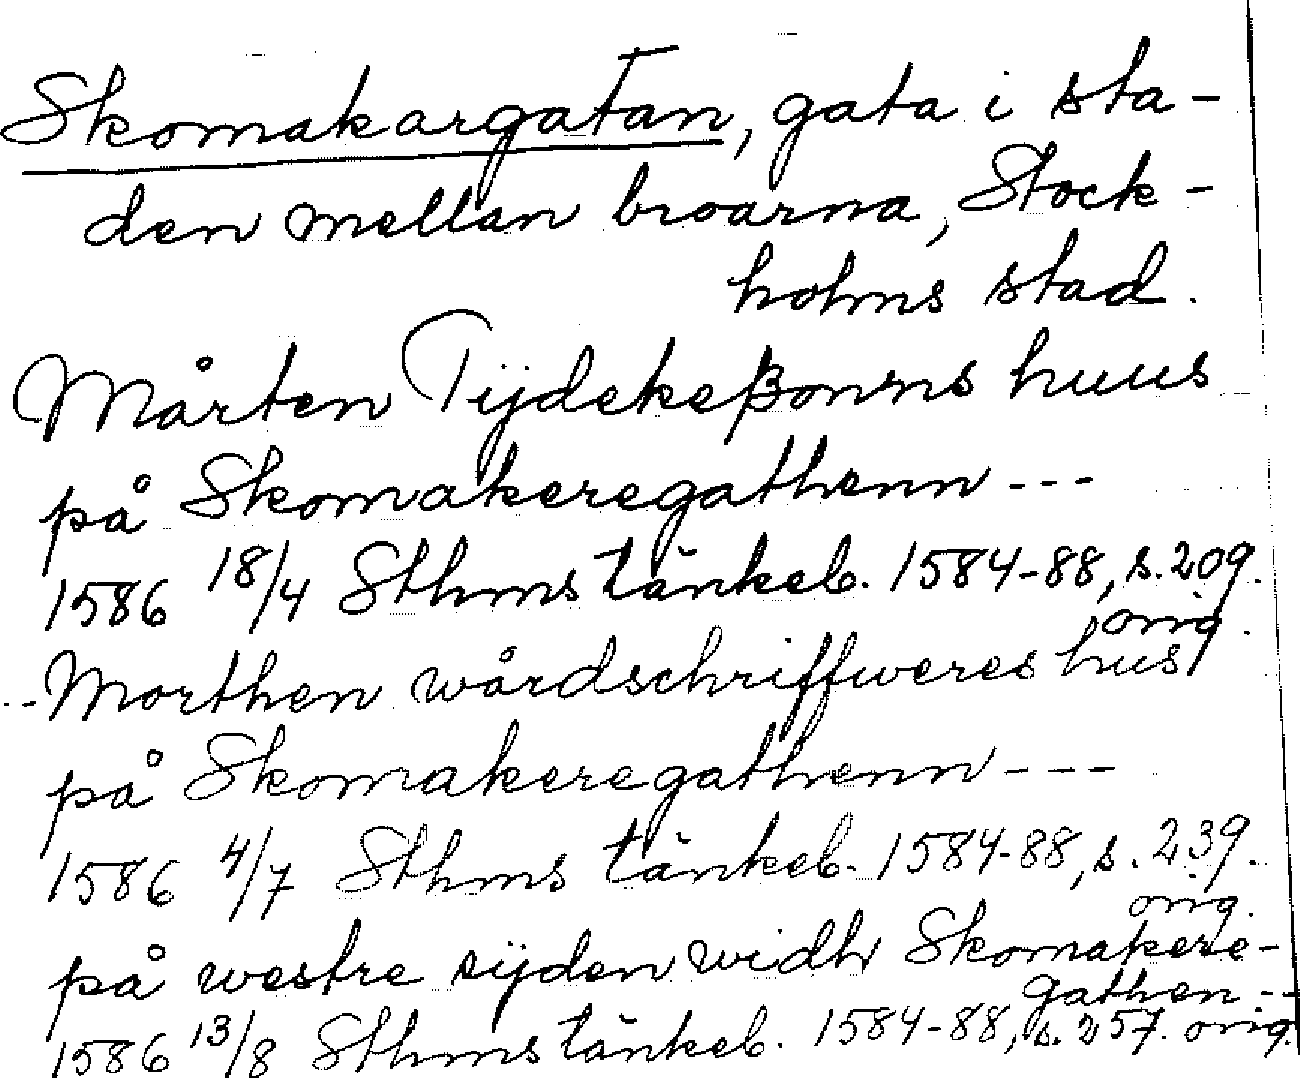 Skomakargatan, gata i sta-
den mellan broarna, Stock-
holms stad.
Mårten Tijdekeßonns huus
på Skomakeregathenn ---
1586 18/4 Sthms tänkeb. 1584-88, s. 209.
orig.
Morthen wårdschriffweres hus
på Skomakeregathenn ---
1586 4/7 Sthms tänkeb. 1584-88, s. 239.
orig.
på westre sijden widh Skomakere-
gathen --
1586 13/8 Sthms tänkeb. 1584-88, s. 257. orig.